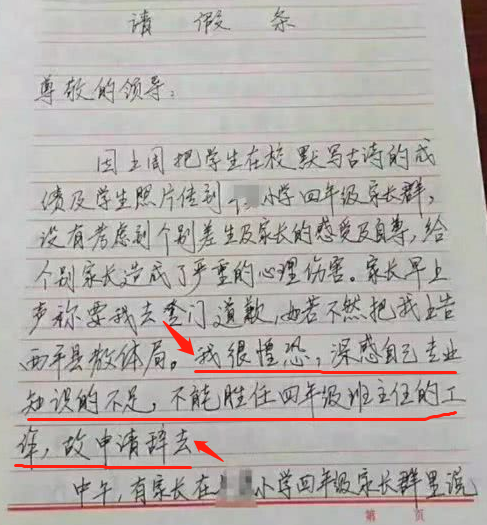 请假条
尊敬的领导:
因上周把学生在校默写古诗的成
绩及学生照片传到小学四年级家长群,
没有考虑到个别差生及家长的感受及自尊,给
个别家长造成了严重的心理伤害。家长早上
声称要我去登门道歉,如若不然把我上告
西平县教体局。我很惶恐,深感自己专业
知识的不足,不能胜任四年级班主任的工
作,故申请辞去
中午,有家长在小学四年级家长群里说
第 页